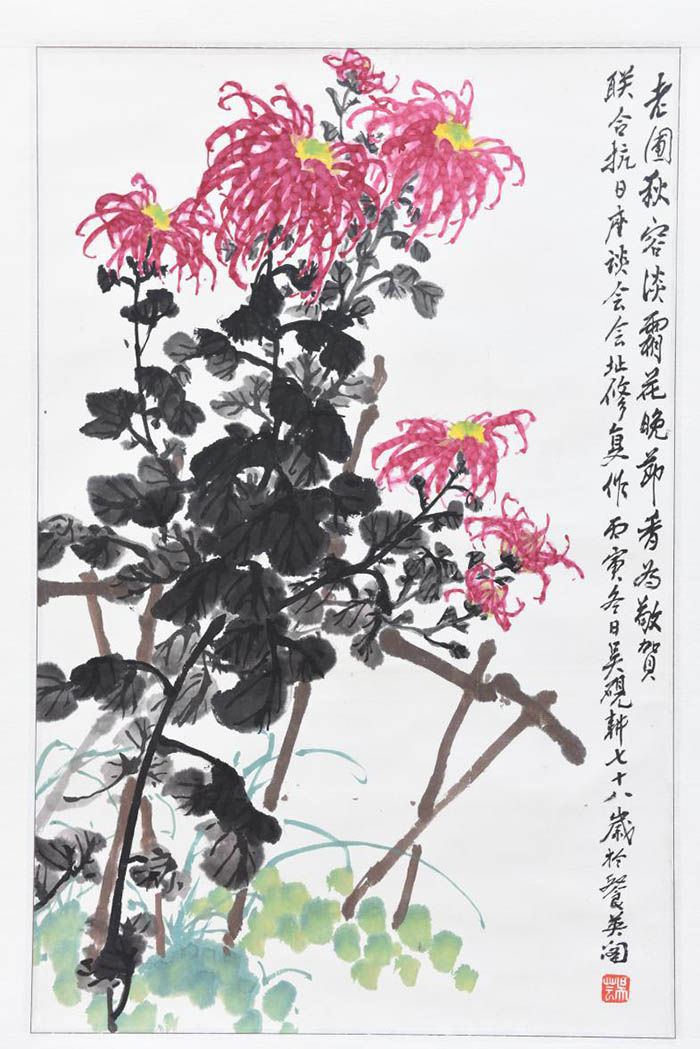 老圃秋容淡霜花晚节香为敬贺
联合抗日座谈会会址修复作丙寅冬日吴砚耕七十八岁於餐英阁